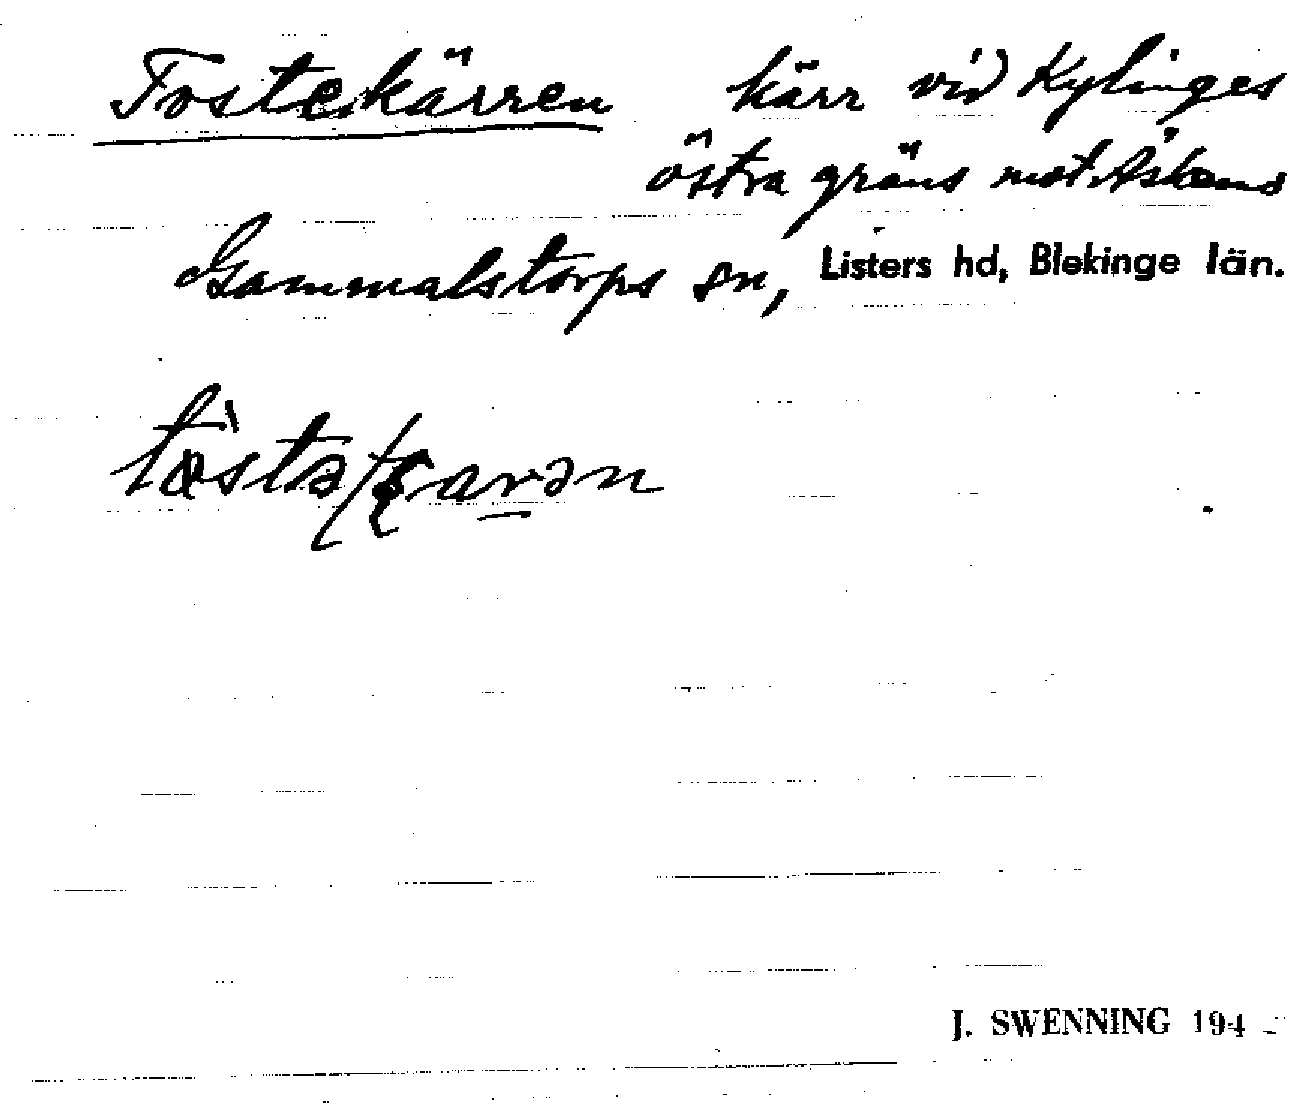 Tostekärren kärr vid Kylinges
östra gräns mot
Gammalstorps sn, Listers hd, Blekinge län.
J. SWENNING 194